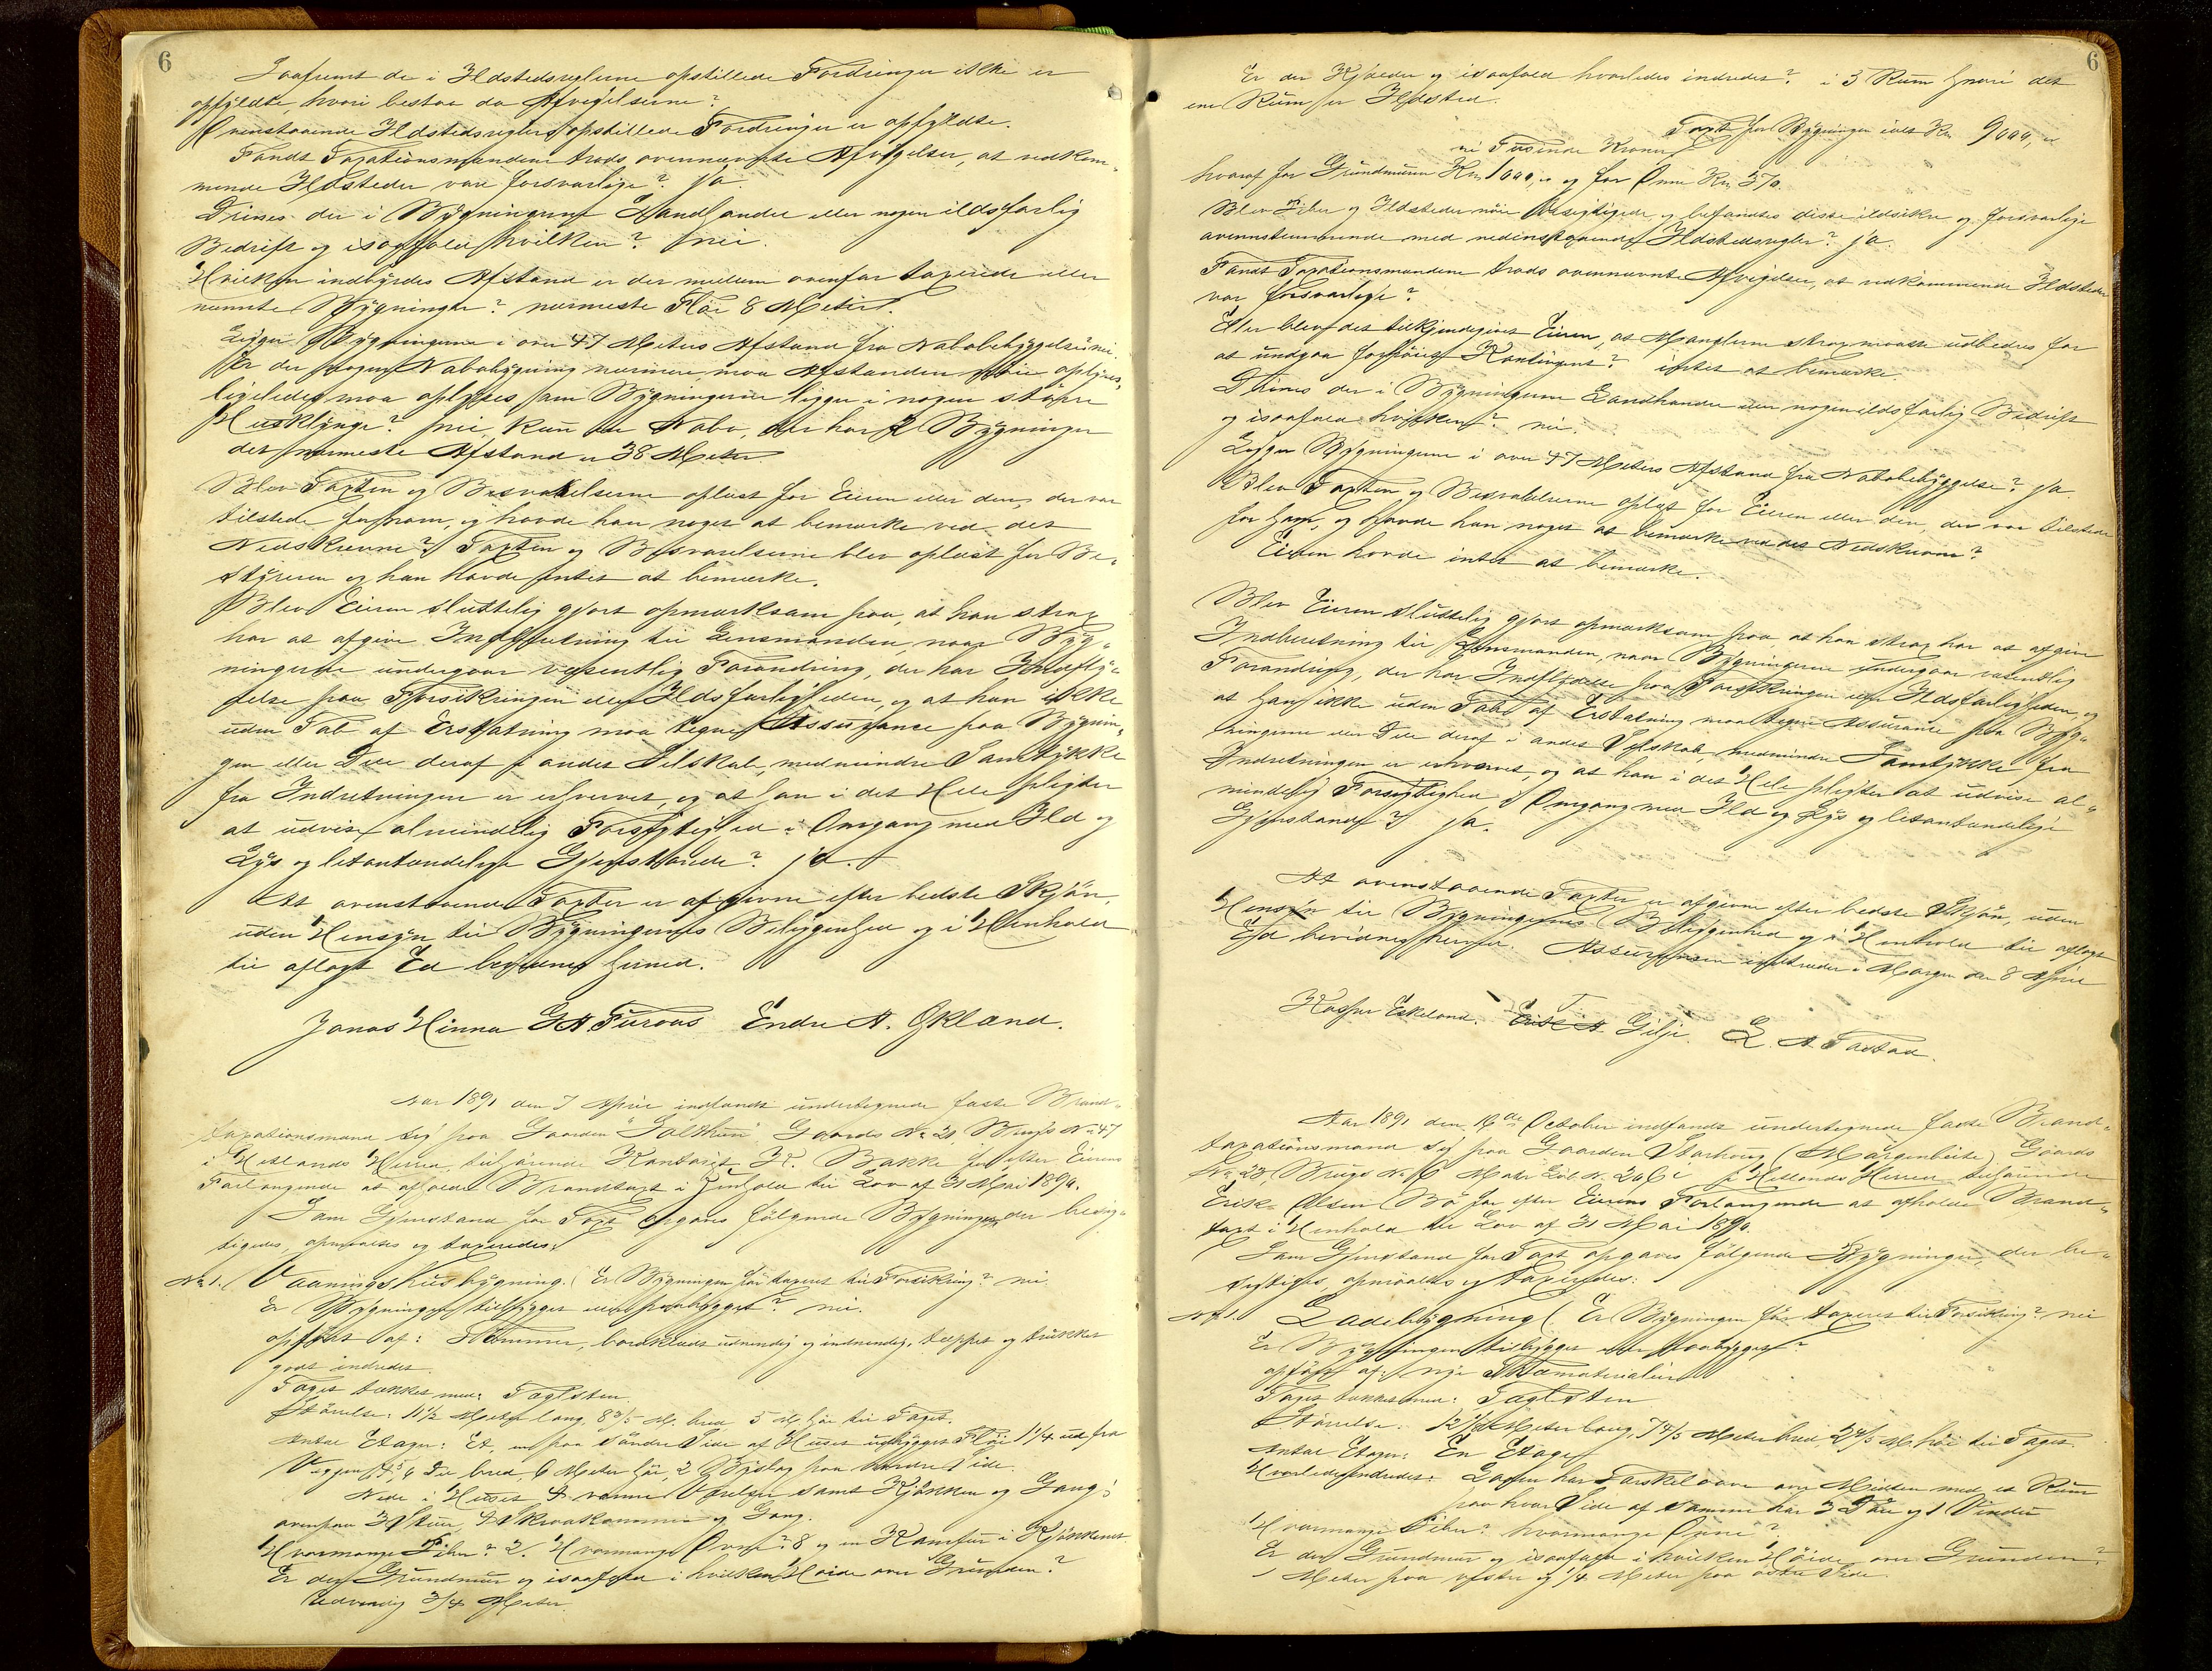 6
Saafremt de i Ildstedsreglerne opstillede Fordringer ikke er
opfyldte, hvori bestaa da Afvigelserne?
Ovenstaaende Ildstedsreglers opstillede Fordringer er opfyldte.
Fandt Taxationsmændene trods ovennævnte Afvigelser, at vedkom-
mende Ildsteder vare forsvarlige? Ja.
Drives der i Bygningerne Landhandel eller nogen ildsfarlig
Bedrift og isaafald hvilken? nei.
Hvilken indbyrdes Afstand er der mellem ovenfor taxerede eller
nævnte Bygninger? nærmeste Flöi 8 Meter.
Ligger Bygningerne i over 47 Meters Afstand fra Nabobebyggelse? nei.
Er der nogen Nabobygning nærmere, maa Afstanden oplyses,
ligeledes maa oplyses om Bygningerne ligger i nogen större
Husklynge? nei, kun en Nabo, der har 2 Bygninger
det nærmeste Afstand er 38 Meter.
Blev Taxten og Besvarelserne oplæst for Eieren eller den, der var
tilstede for ham, og havde han noget at bemærke ved det
Nedskrevne? Taxten og Besvarelserne blev oplæst for Be-
styreren og han havde intet at bemærke.
Blev Eieren sluttelig gjort opmærksom paa, at han strax
har at afgive Indberetning til Lensmanden, naar Byg-
ningerne undergaar væsentlig Forandring, der har Indfly-
delse paa Forsikringen eller Ildsfarligheden, og at han ikke
uden Tab af Erstatning maa tegne Assurance paa Bygnin-
gen eller Dele deraf i andet Selskab, medmindre Samtykke
fra Indretningen er erhvervet, og at han i det Hele pligter
at udvise almindelig Forsigtighed i Omgang med Ild og
Lys og letantændelige Gjenstande? ja.
At ovenstaaende Taxter er afgivne efter bedste Skjön,
uden Hensyn til Bygningernes Beliggenhed og i Henhold
til aflagt Ed bevidnes herved.
Jonas Hinna G A Furaas Endre A. Økland.
Aar 1891 den 7 April indfandt undertegnede faste Brand-
taxationsmænd sig paa Gaarden Gaards No 20, Brugs No 47
i Hetlands Herred, tilhörende K. Bakke for efter Eierens
Forlangende at afholde Brandtaxt i Henhold til Lov af 31 Mai 1890.
Som Gjenstand for Taxt opgaves fölgende Bygninger, der besig-
tigedes, opmaaltes og taxeredes:
No 1. Vaaningshusbygning. (Er Bygningen för taxeret til Forsikring? nei.
Er Bygningen tilbygget eller paabygget? nei.
opfört af: Tömmer, bordklædt udvendig og indvendig, tappet og trukket
godt indredet.
Taget tækket med: Taglsten
Störrelse: 11 1/2 Meter lang, 8 3/5 M. bred 5 M. höi til Taget.
Antal Etager: Et, en paa söndre Side af Huset udbygget Flöi 1 1/4 ud fra
Væggen, bred, 6 Meter höi, 2 paa nordre Side.
Nede i Huset 4 Værelser samt Kjökken og Gang;
ovenpaa og Gang.
Hvormange Piber? 2. Hvormange Ovne? 8 og en Komfur i Kjökkenet
Er der Grundmur og isaafald i hvilken Höide over Grunden?
Udvendig 3/4 Meter.
6
Er der Kjælder og isaafald hvorledes indredet? i 3 Rum hvori det
ene Rum er Ildsted.
Taxt for Bygningen ialt Kr. 9000,
ni Tusinde Kroner
hvoraf for Grundmuren Kr. 1000, og for Ovne Kr. 370.
Blev Piber og Ildsteder nöie besigtigede og befandtes disse ildsikre og forsvarlige
overensstemmende med nedenstaaende Ildstedsregler? ja.
Fandt Taxationsmændene trods ovennævnte Afvigelser, at vedkommende Ildsteder
var forsvarlige?
Eller blev det tilkjendegivet Eieren, at Manglerne strax maatte udbedres for
at undgaa forhöiet Kontingent? intet at bemærke.
Drives der i Bygningerne Landhandel eller nogen ildsfarlig Bedrift
og isaafald hvilken? nei.
Ligger Bygningerne i over 47 Meters Afstand fra Nabobebyggelse? ja.
Blev Taxten og Besvarelserne oplæst for Eieren eller den, der var tilstede
for ham, og havde han noget at bemærke ved det Nedskrevne?
Eieren havde intet at bemærke.
Blev Eieren sluttelig gjort opmærksom paa at han strax har at afgive
Indberetning til Lensmanden, naar Bygningerne undergaar væsentlig
Forandring, der har Indflydelse paa Forsikringen eller Ildsfarligheden, og
at han ikke uden Tab af Erstatning maa tegne Assurance paa Byg-
ningerne eller Dele deraf i andet Selskab, medmindre Samtykke fra
Indretningen er erhvervet, og at han i det Hele pligter at udvise al-
mindelig Forsigtighed i Omgang med Ild og Lys og letantændelige
Gjenstande? ja.
At ovenstaaende Taxter er afgivne efter bedste Skjön, uden
Hensyn til Bygningernes Beliggenhed og i Henhold til aflagt
Ed bevidnes herved. Assurancen indtræder i Morgen den 8 April
Kasper Eskeland. T. Gilje. L. A. Tastad.
Aar 1891 den October indfandt undertegnede faste Brand-
taxationsmænd sig paa Gaarden Storhoug (Margenbeite) Gaards
No 28, Brugs No 6 i Hetlands Herred tilhörende
Erik Olsen Bö for efter Eierens Forlangende at afholde Brand-
taxt i Henhold til Lov af 31 Mai 1890.
Som Gjenstand for Taxt opgaves fölgende Bygninger, der be-
sigtiges, opmaaltes og taxeredes:
No 1. Ladebygning (Er Bygningen för taxeret til Forsikring? nei
Er Bygningen tilbygget eller paabygget?
opfört af: nye Træmaterialier
Taget tækket med: Taglsten
Störrelse: 12 1/2 Meter lang, 7 4/5 Meter bred, 2 4/5 M. höi til Taget.
Antal Etager: En Etage
Hvorledes indredet: Laden har Tærskelaave over Midten med et Rum
paa hver Side af samme har 3 Döre og 1 Vindu
Hvormange Piber? hvormange Ovne?
Er der Grundmur og isaafald i hvilken Höide over Grunden?
1 Meter paa vestre og 1/4 Meter paa östre Side.